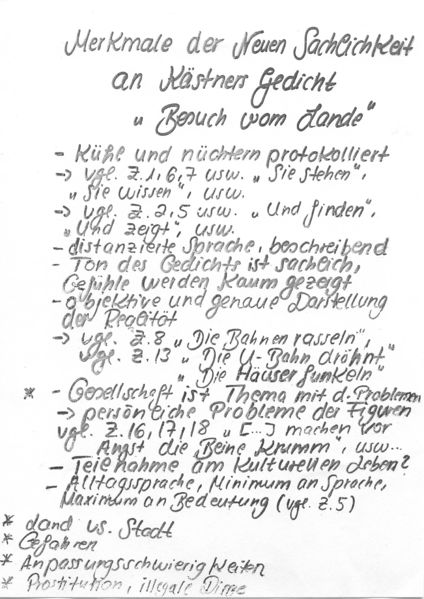 Merkmale der Neuen Sachlichkeit
an Kästners Gedicht
„Besuch vom Lande"
- Kühl und nüchtern protokolliert
-> vgl. Z. 1, 6, 7 usw. „Sie stehen",
„Sie wissen", usw.
-> vgl. Z. 2, 5 usw. „Und finden",
„Und zeigt", usw.
- distanzierte Sprache, beschreibend
- Ton des Gedichts ist sachlich,
Gefühle werden kaum gezeigt
- objektive und genaue Darstellung
der Realität
-> vgl. Z. 8 „Die Bahnen rasseln",
vgl. Z. 13 „Die U-Bahn dröhnt"
„Die Häuser funkeln"
* - Gesellschaft ist Thema mit d. Problemen
-> persönliche Probleme der Figuren
vgl. Z. 16, 17, 18 „[...] machen vor
Angst die Beine krumm", usw...
- Teilnahme am kulturellen Leben?
- Alltagssprache, Minimum an Sprache,
Maximum an Bedeutung (vgl. Z. 5)
* Land vs. Stadt
* Gefahren
* Anpassungsschwierigkeiten
* Prostitution, illegale Dinge